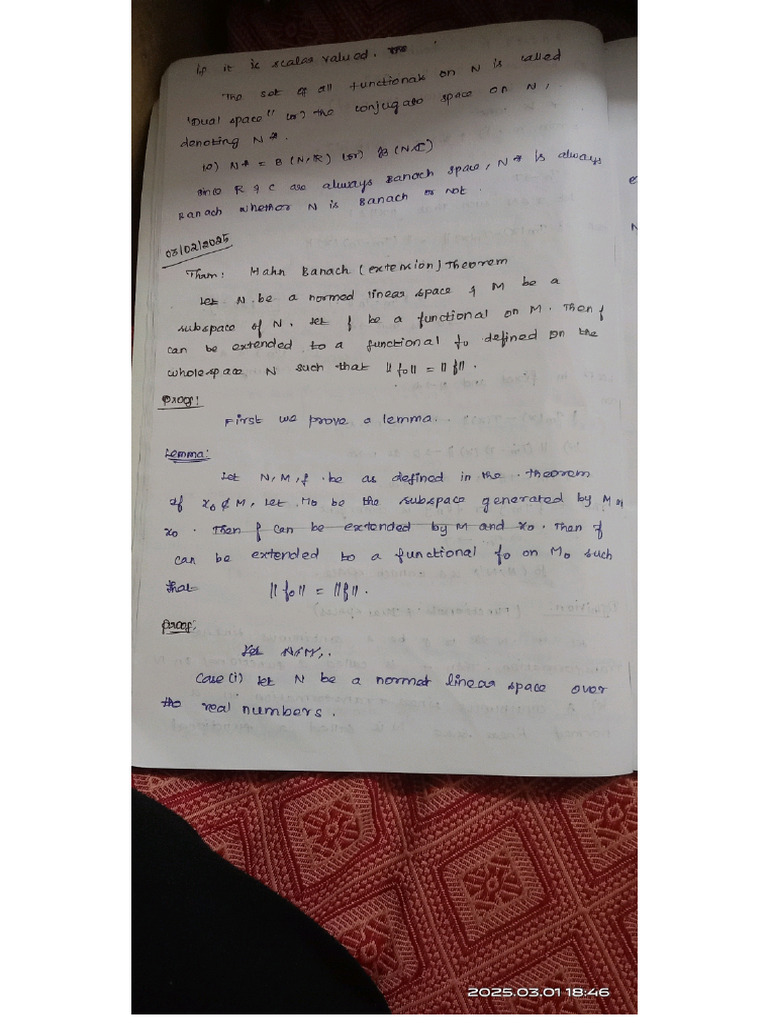 if it is scalar valued.
The set of all functionals on N is called
"Dual space" (or) the conjugate space on N,
denoting N*.
(e) N* = B (N, R) (or) B (N, C)
since R & C are always Banach space, N* is always
Banach whether N is Banach or not.
03/02/2025
Thm: Hahn Banach (extension) Theorem
Let N be a normed linear space & M be a
subspace of N. Let f be a functional on M. Then f
can be extended to a functional fo defined on the
wholespace N such that ||fo|| = ||f||.
Proof:
First we prove a lemma.
Lemma:
Let N, M, f be as defined in the theorem
If xo ∉ M, Let Mo be the subspace generated by M &
xo. Then f can be extended by M and xo. Then f
can be extended to a functional fo on Mo such
that ||fo|| = ||f||.
Proof:
Let N, M,.
Case (i) let N be a normed linear space over
the real numbers.
2025.03.01 18:46